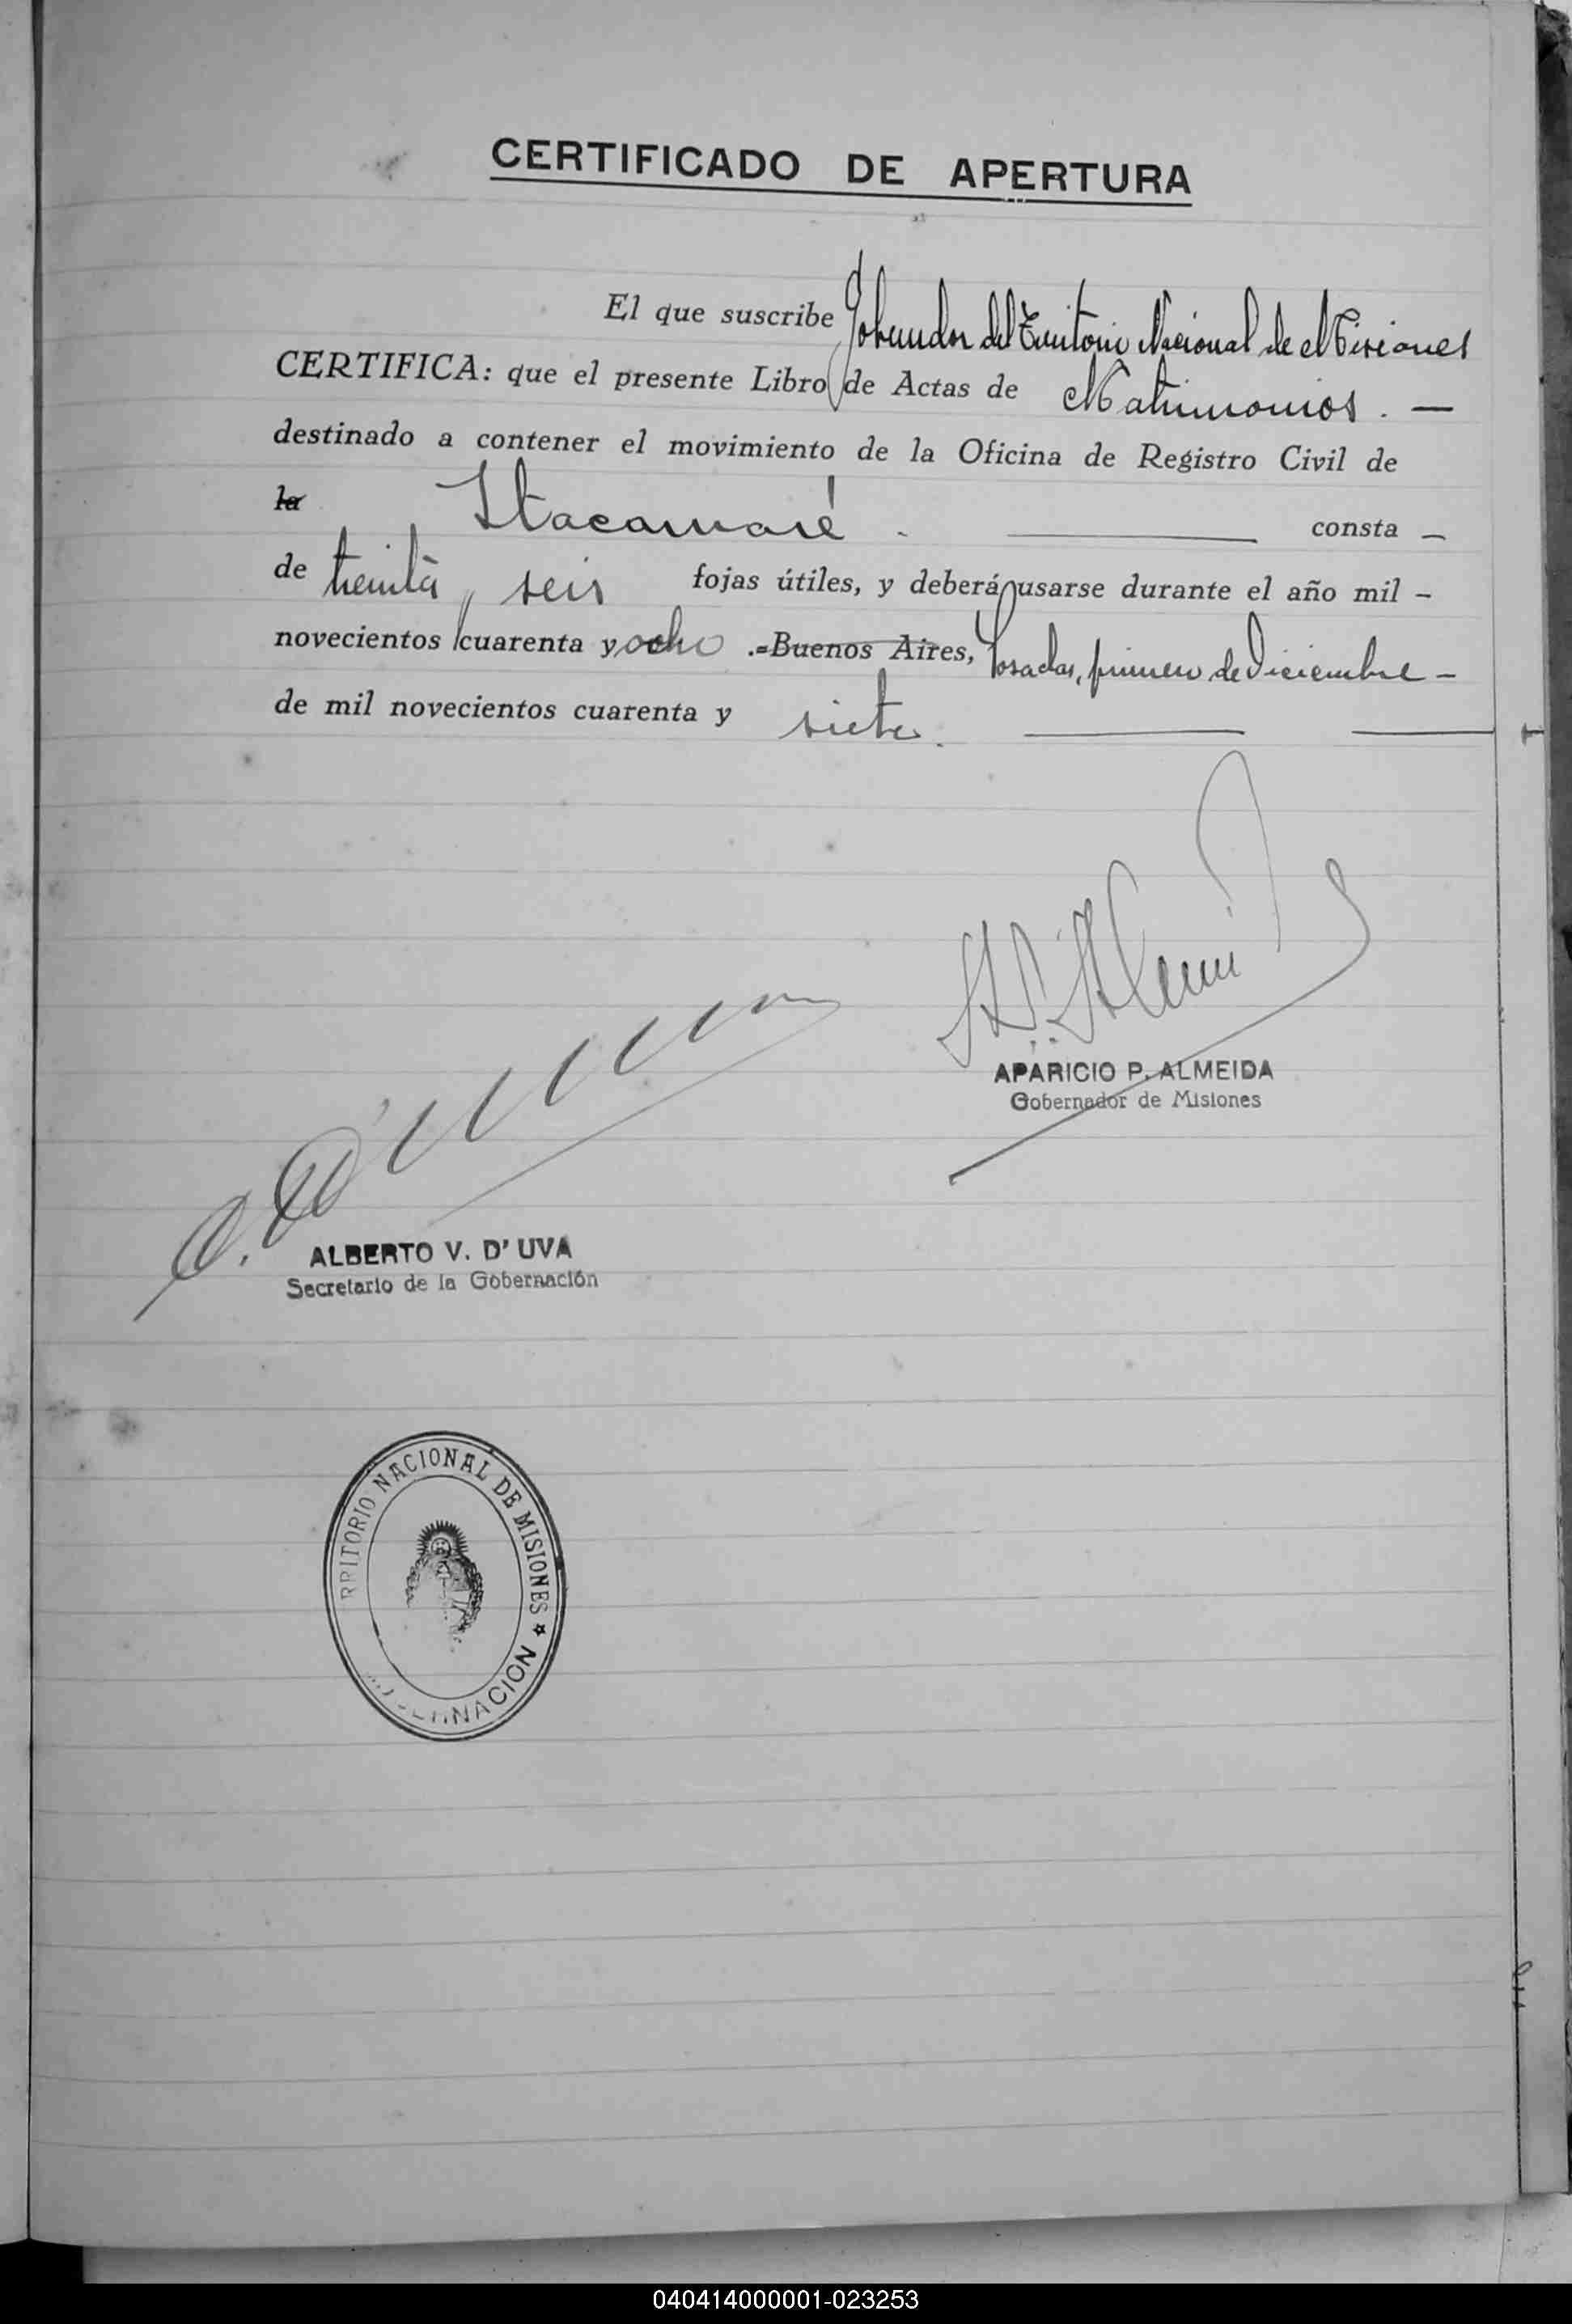 CERTIFICADO DE APERTURA
El que suscribe Gobernador del Territorio Nacional de Misiones
CERTIFICA: que el presente Libro de Actas de Matrimonios. —
destinado a contener el movimiento de la Oficina de Registro Civil de
la Itacaruaré . — consta —
de treinta y seis fojas útiles, y deberá usarse durante el año mil —
novecientos cuarenta y ocho .=Buenos Aires, Posadas, primero de Diciembre —
de mil novecientos cuarenta y siete. — —
APARICIO P. ALMEIDA
Gobernador de Misiones
ALBERTO V. D'UVA
Secretario de la Gobernación
RRITORIO NACIONAL DE MISIONES ★
ERNACION
040414000001-023253